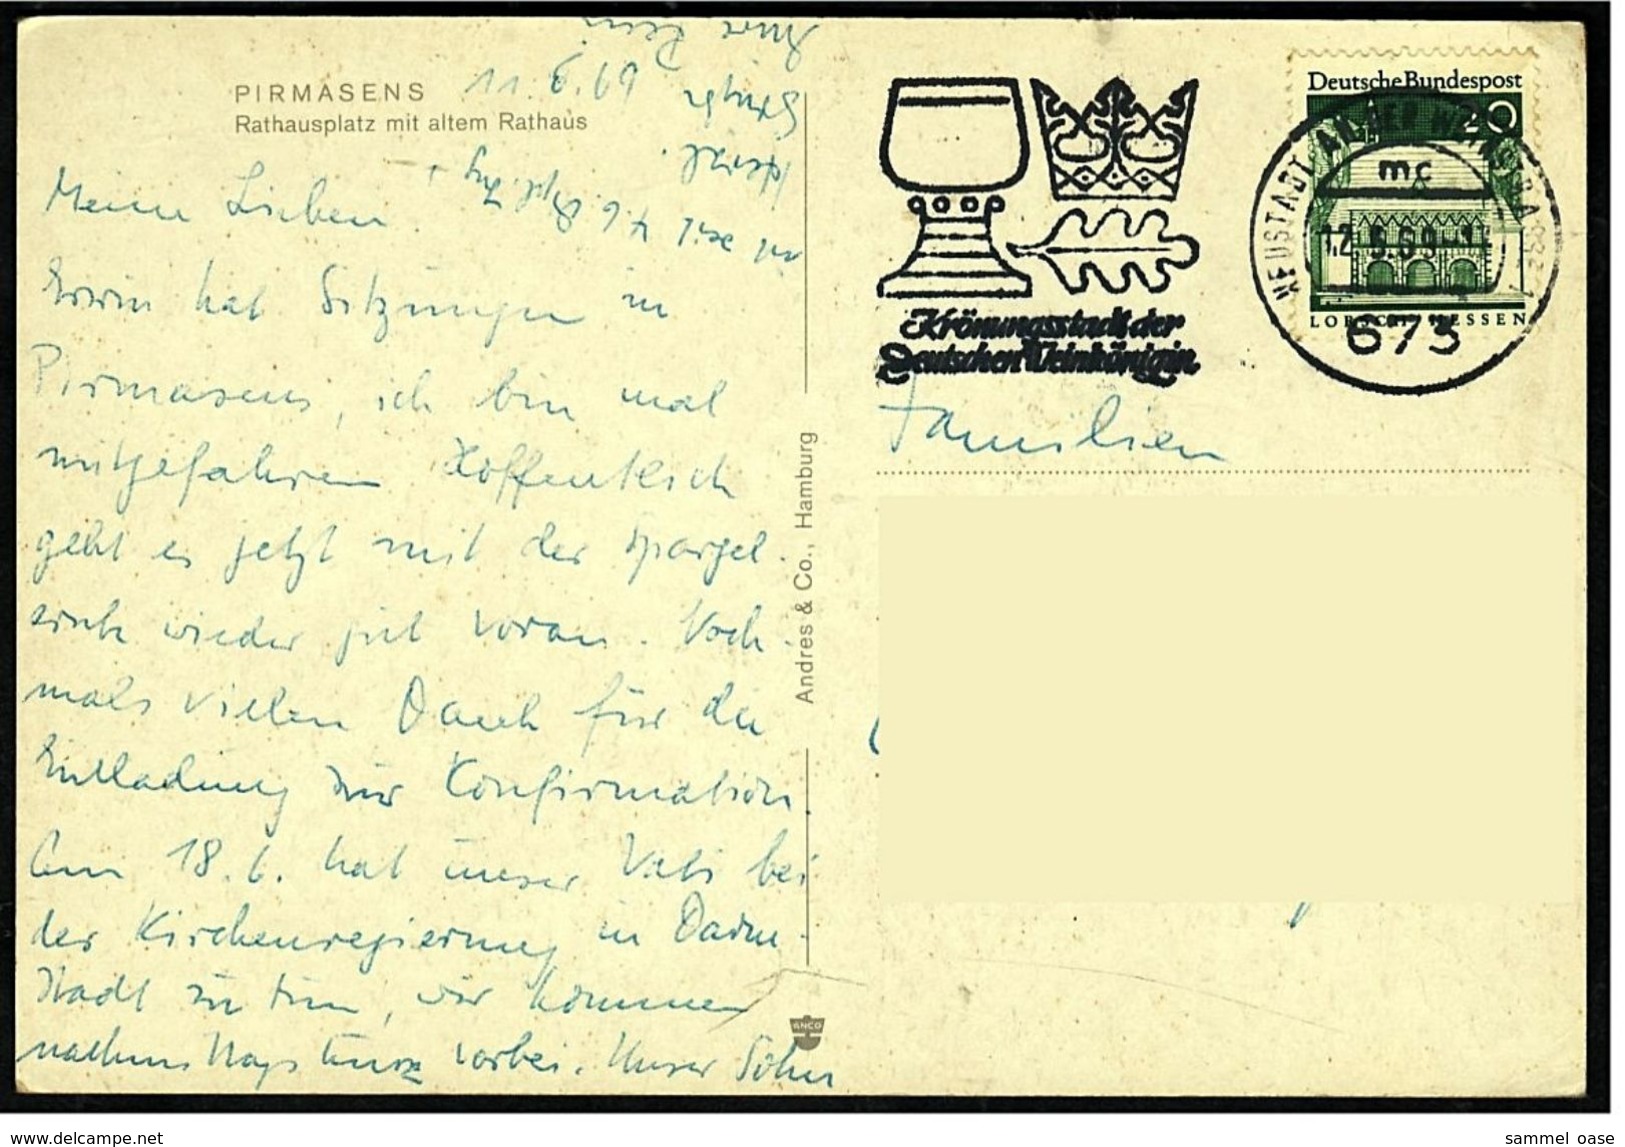 PIRMASENS
Rathausplatz mit altem Rathaus
11.6.69
Meine Lieben
Erwin hat Sitzungen in
Pirmasens, ich bin mal
mitgefahren Hoffentlich
geht es jetzt mit der Spargel-
ernte wieder gut voran. Noch-
mals vielen Dank für die
Einladung zur Confirmation.
Am 18.6. hat unser Vati bei
der Kirchenregierung in Darm-
stadt zu tun, wir kommen
nachmittags kurz vorbei. Unser Sohn
ist seit 4.6.
Herzl.
Grüße
Eure
Andres & Co., Hamburg
ANCO
Krönungsstadt der
Deutschen Weinkönigin
Deutsche Bundespost
20
LORSCH HESSEN
NEUSTADT AN DER WEINSTRASSE 1
mc
12.6.69-17
673
Familien
www.delcampe.net
sammel_oase